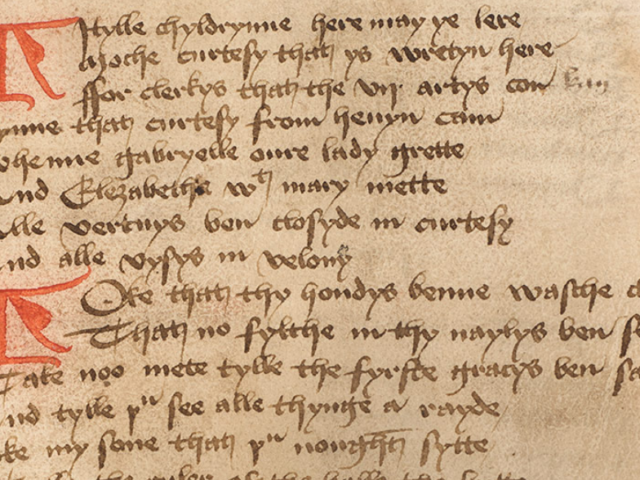 Lytylle chyldrynne here may ye lere
Moche curtesy that ys wretyn here
ffor clerkys that the vij artys con
ynne that curtesy from hevyn cam
whenne gabryelle oure lady grette
And Elezabethe wt mary mette
Alle vertuys ben closyde in curtesy
And alle vysys in velony
Loke that thy hondys benne wasche
That no fylthe in thy naylys ben
Take noo mete tylle the fyrste gracys ben
And tylle þu see alle thynge a rayde
Loke my sone that þu nought sytte
the halle the